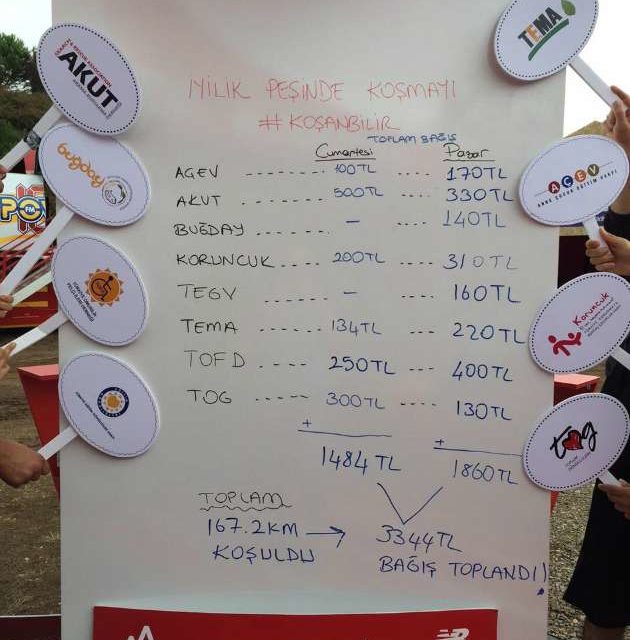 İYİLİK PEŞİNDE KOŞMAYI
#KOŞANBİLİR
TOPLAM BAĞIŞ
Cumartesi Pazar
AÇEV ------- 100TL .... 170TL
AKUT ------- 500TL .... 330TL
BUĞDAY ....... – .... 140TL
KORUNCUK .... 200TL .... 310TL
TEGV ------ – ---- 160TL
TEMA ------ 134TL --- 220TL
TOFD ------ 250TL ---- 400TL
TOG ----- 300TL ---- 130TL
+ +
1484TL 1860TL
TOPLAM
167.2KM → 3344TL
KOŞULDU BAĞIŞ TOPLANDI!
AKUT
Buğday
TEMA
AÇEV
ANNE ÇOCUK EĞİTİM VAKFI
Koruncuk
tog
PO